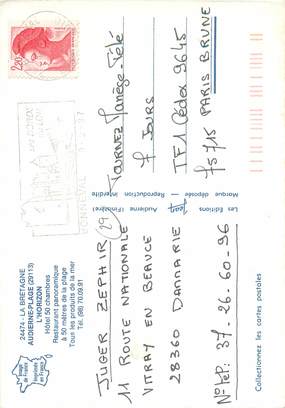 24474 - LA BRETAGNE
AUDIERNE-PLAGE (29113)
L'HORIZON
Hôtel 50 chambres
Restaurant panoramique
à 50 mètres de la plage
Tous les produits de la mer
Tél. (98) 70.09.91
JUGER ZEPHIR (29)
11 ROUTE NATIONALE
VITRAY EN BEAUCE
28360 DAMMARIE
N° tél: 37-26-60-96
Les Editions Jean Audierne (Finistère)
Marque déposée - Reproduction interdite
2,20
BONNEVAL
TOURNEZ Manège-Télé
7 JOURS
TF1 Cédex 9645
75715 PARIS BRUNE
Collectionnez les cartes postales